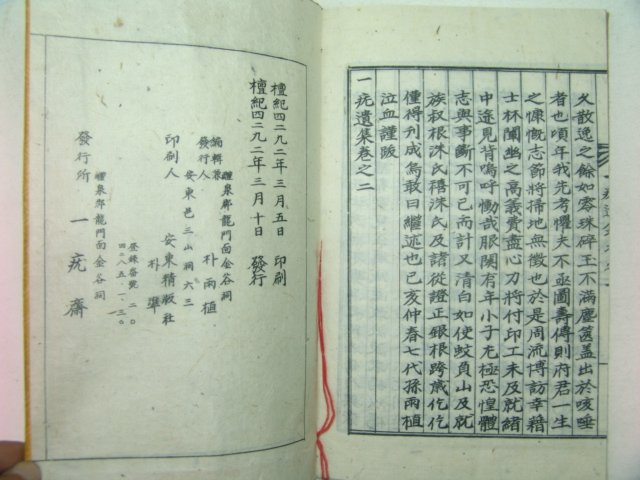 久散逸之餘如零珠碎玉不滿塵篋盖出於咳唾
者也頃年我先考懼夫不亟圖壽傳則府君一生
之慷慨志節將掃地無徵也於是周流博訪幸藉
士林闡幽之高義費盡心力將付印工未及就緖
中途見背嗚呼慟哉服闋有年小子尤極恐惶體
志與事斷不可已而計又清白如使蚊負山及就
族叔根洙氏禧洙氏及諸從證正銀根跨歲仡仡
僅得刋成焉敢曰繼述也己亥仲春七代孫雨植
泣血謹跋
一疣遺集卷之二
檀紀四二九二年三月五日 印刷
檀紀四二九二年三月十日 發行
編輯兼
發行人
醴泉郡龍門面金谷祠
朴雨植
安東邑三山洞六三
印刷人 朴準
安東精版社
登錄番號 二〇
四二八五·一·三〇
醴泉郡龍門面金谷祠
發行所 一疣齋